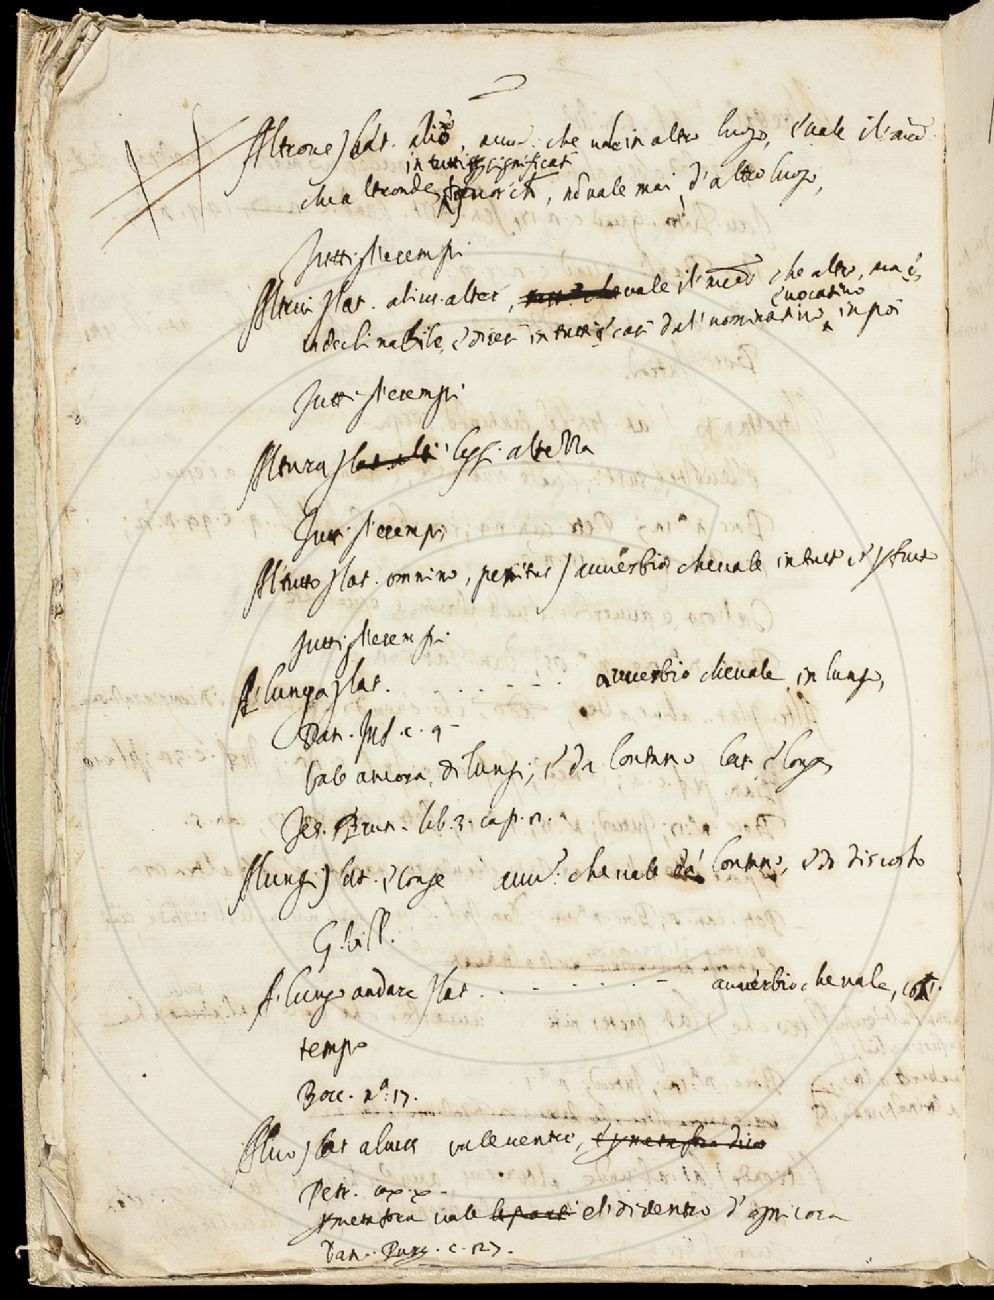 Altrove) lat. aliò, avv. che vale in altro luogo, e vale il med.
in tutti i significati
che altronde, fuorche, nõ vale mai d'altro luogo,
Tutti gli esempi
Altrui) lat. alius. alter, vale il med.º che altro, ma è
e vocativo
indeclinabile, e dicesi in tutti i casi dal nominativo in poi
Tutti gl'esempi
Altura) lat. alti leggi altezza
Tutti gl'esempi
Al tutto) lat. omnino, penitus) avverbio che vale in tutto e p tutto
Tutti gl'esempi
A lunga) lat. . . . . . . avverbio che vale in lungo,
Dan. Inf. c. 9
Vale ancora, di lungi, e da lontano lat. è longe
Tes. Brun. lib. 3. cap. 2.
Alungi) lat. è longe avv.º che vale da lontano, e da discosto
G. Vill.
A lungo andare) lat. . . . . . . . avverbio che vale, col
tempo
Bocc. nº. 17.
Alvo) lat alvus vale ventre, e p metafora dice
Petr. cap. x.
p metafora vale la parte el di dentro d'ogni cosa
Dan. Purg. c. 27.